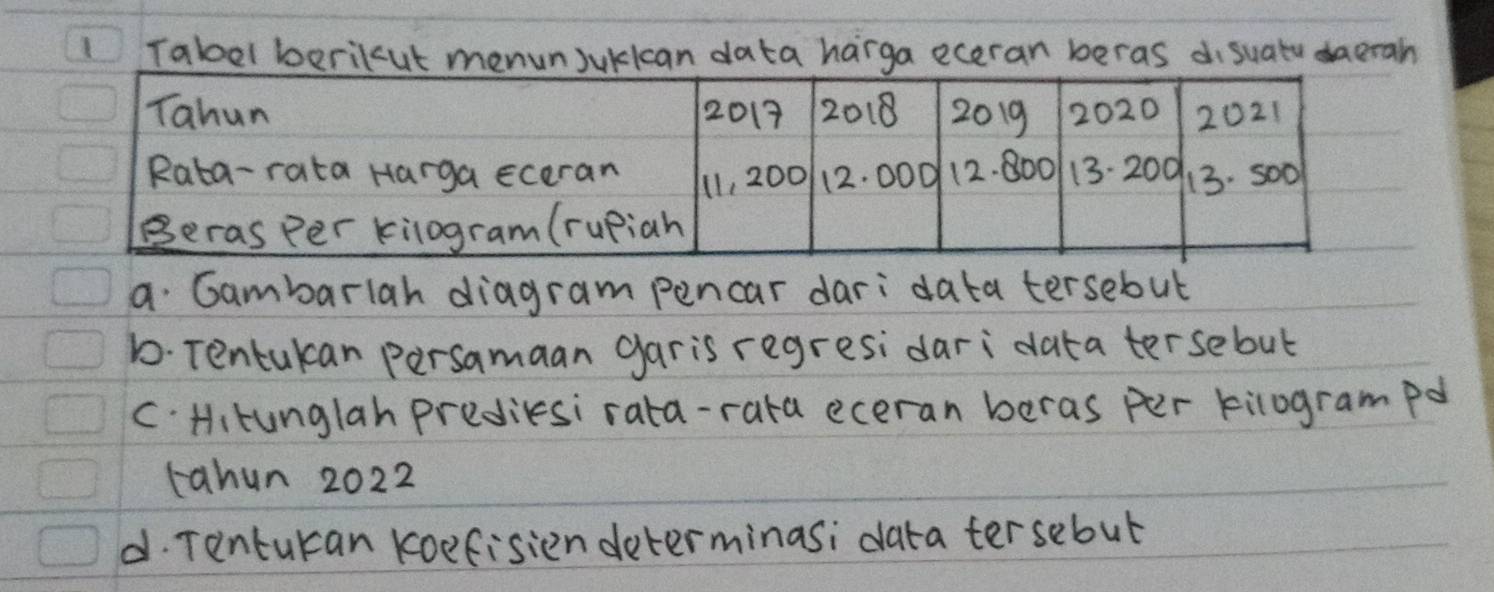 1 Tabel berikut menunjukkan data harga eceran beras disuatu daerah
Tahun 2017 2018 2019 2020 2021
Rata-rata Harga Eceran 11,200 12.000 12.800 13.200 13.500
Beras Per Kilogram (rupiah
a. Gambarlah diagram pencar dari data tersebut
b. Tentukan persamaan garis regresi dari data tersebut
C. Hitunglah prediksi rata-rata eceran beras per kilogram pd
tahun 2022
d. Tentukan koefisien determinasi data tersebut